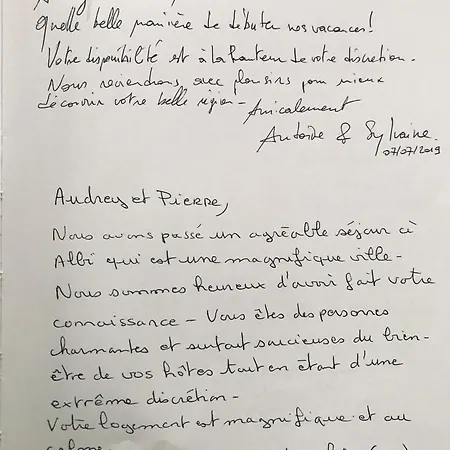 Quelle belle manière de débuter nos vacances!
Votre disponibilité est à la hauteur de votre discrétion.
Nous reviendrons, avec plaisirs pour mieux
découvrir votre belle région - Amicalement
Antoine & Sylvaine.
07/07/2019
Audrey et Pierre,
Nous avons passé un agréable séjour à
Albi qui est une magnifique ville -
Nous sommes heureux d'avoir fait votre
connaissance - Vous êtes des personnes
charmantes et surtout soucieuses du bien-
être de vos hôtes tout en étant d'une
extrême discrétion -
Votre logement est magnifique et au
calme